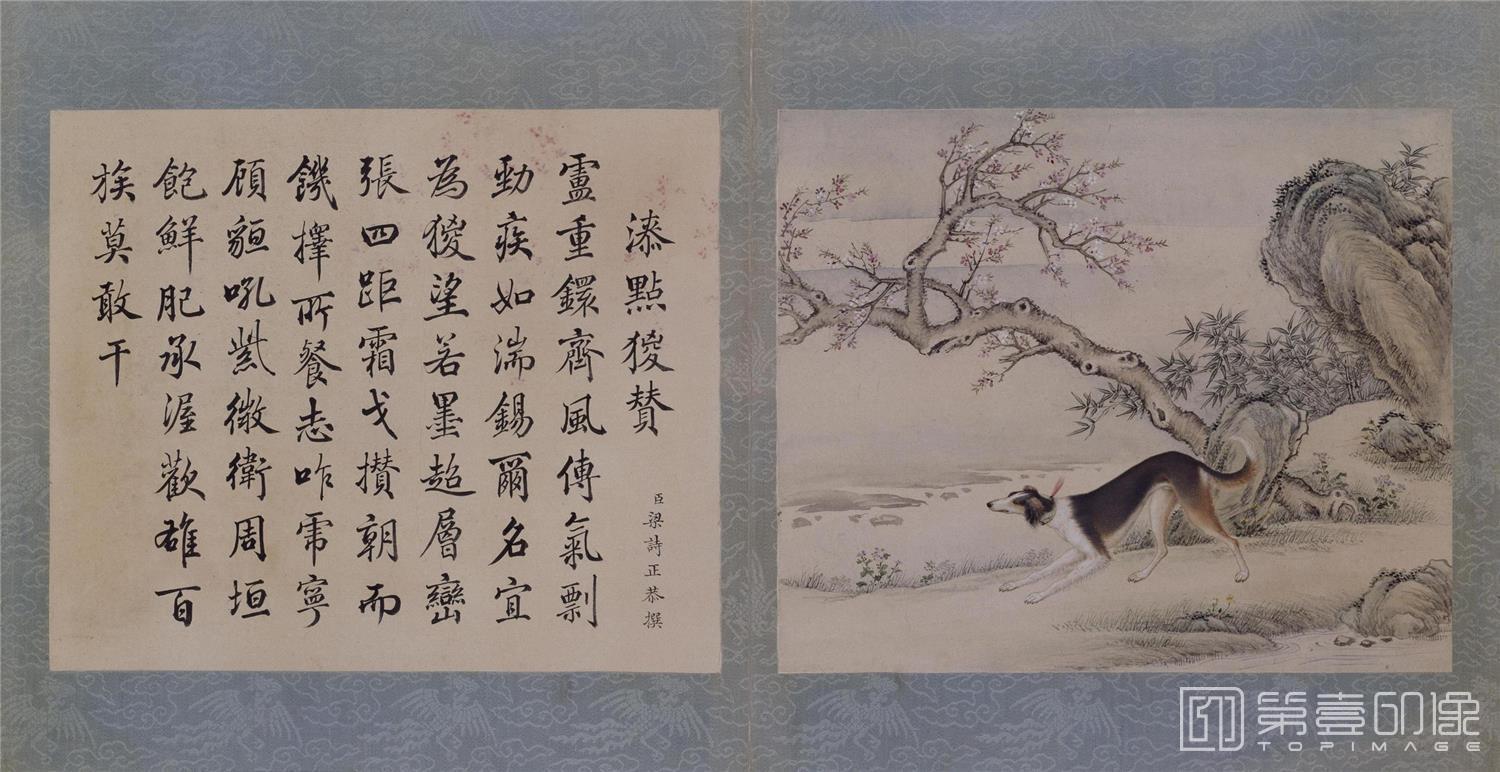 漆點猣賛
臣梁詩正恭撰
盧重鐶齊風傳氣剽
勁疾如湍錫爾名宜
為猣望若墨超層巒
張四距霜戈攢朝而
饑擇所餐志咋乕寧
頋貆吼紫微衛周垣
飽鮮肥承渥歡雄百
族莫敢干
第壹印像
TOPIMAGE